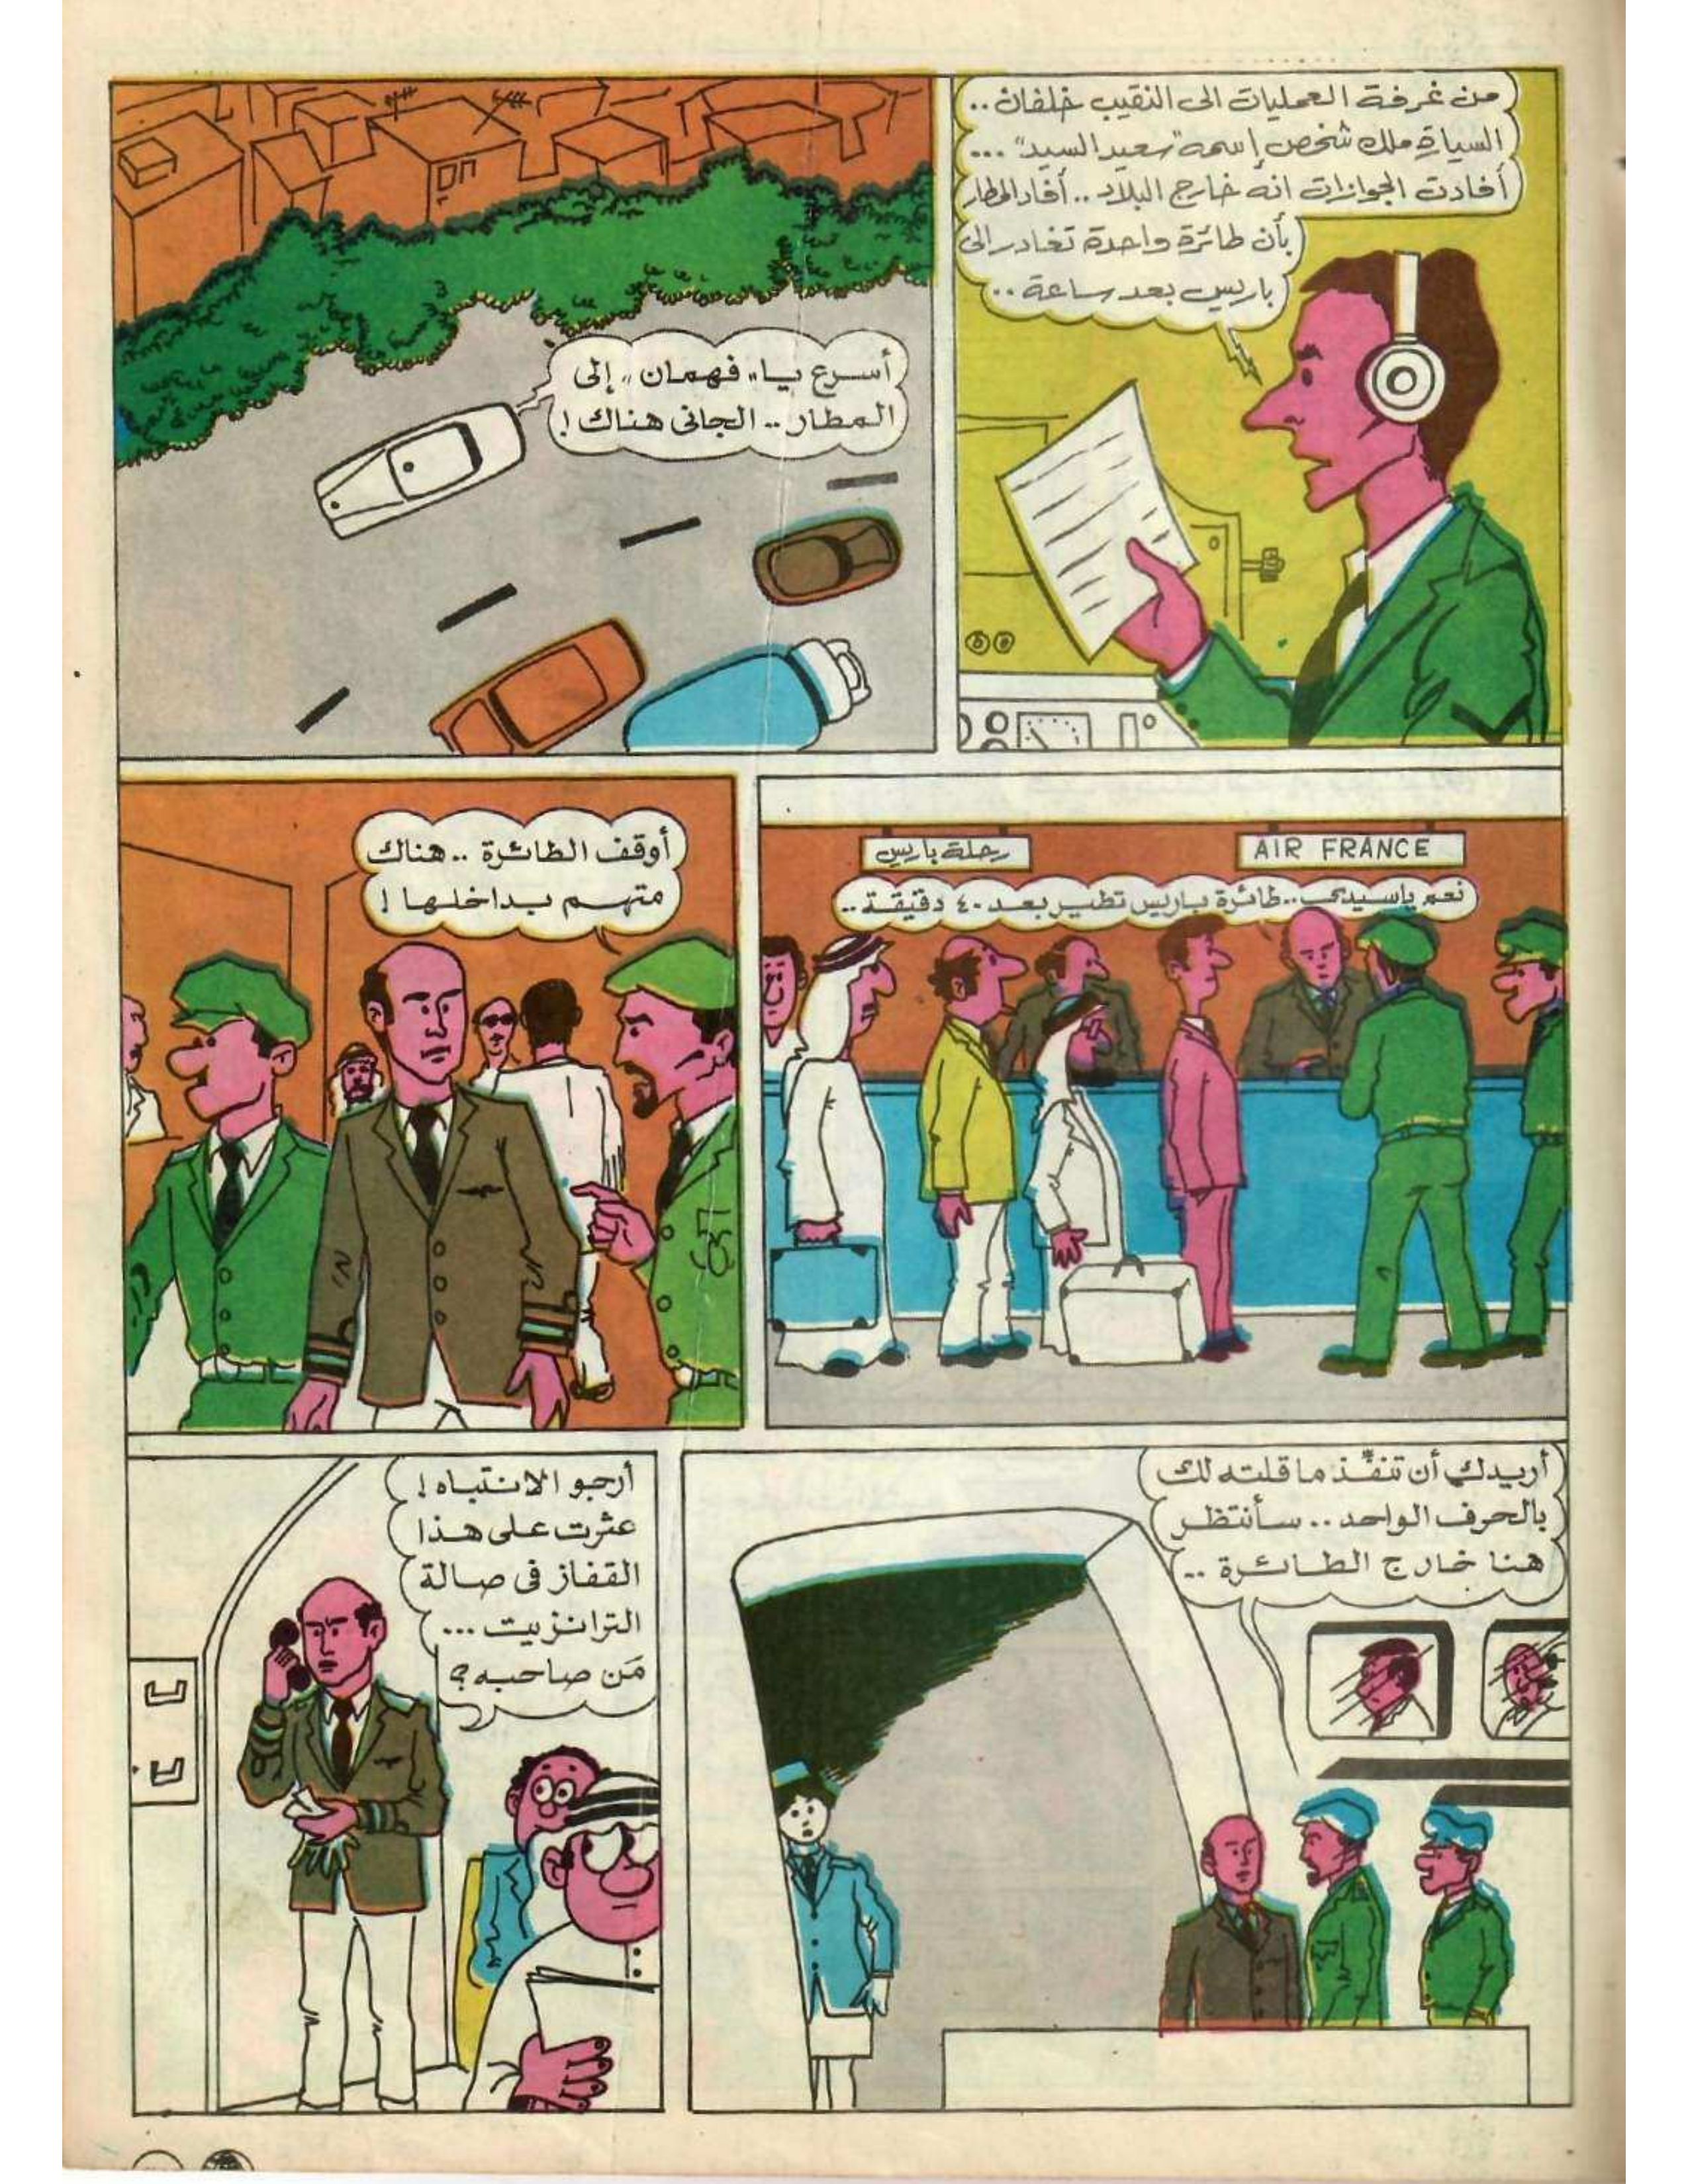 من غرفة العمليات الى النقيب خلفان ..
السيارة ملك شخص إسمه "سعيد السيد" ...
أفادت الجوازات انه خارج البلاد .. أفاد المطار
بأن طائرة واحدة تغادر الى
باريس بعد ساعة ..
أسرع يا "فهمان" إلى
المطار .. الجانى هناك !
AIR FRANCE
رحلة باريس
نعم ياسيدى .. طائرة باريس تطير بعد ٤٠ دقيقة ..
أوقف الطائرة .. هناك
متهم بداخلها !
أريدك أن تنفّذ ما قلته لك
بالحرف الواحد .. سأنتظر
هنا خارج الطائرة ..
أرجو الانتباه !
عثرت على هذا
القفاز فى صالة
الترانزيت ...
مَن صاحبه ؟